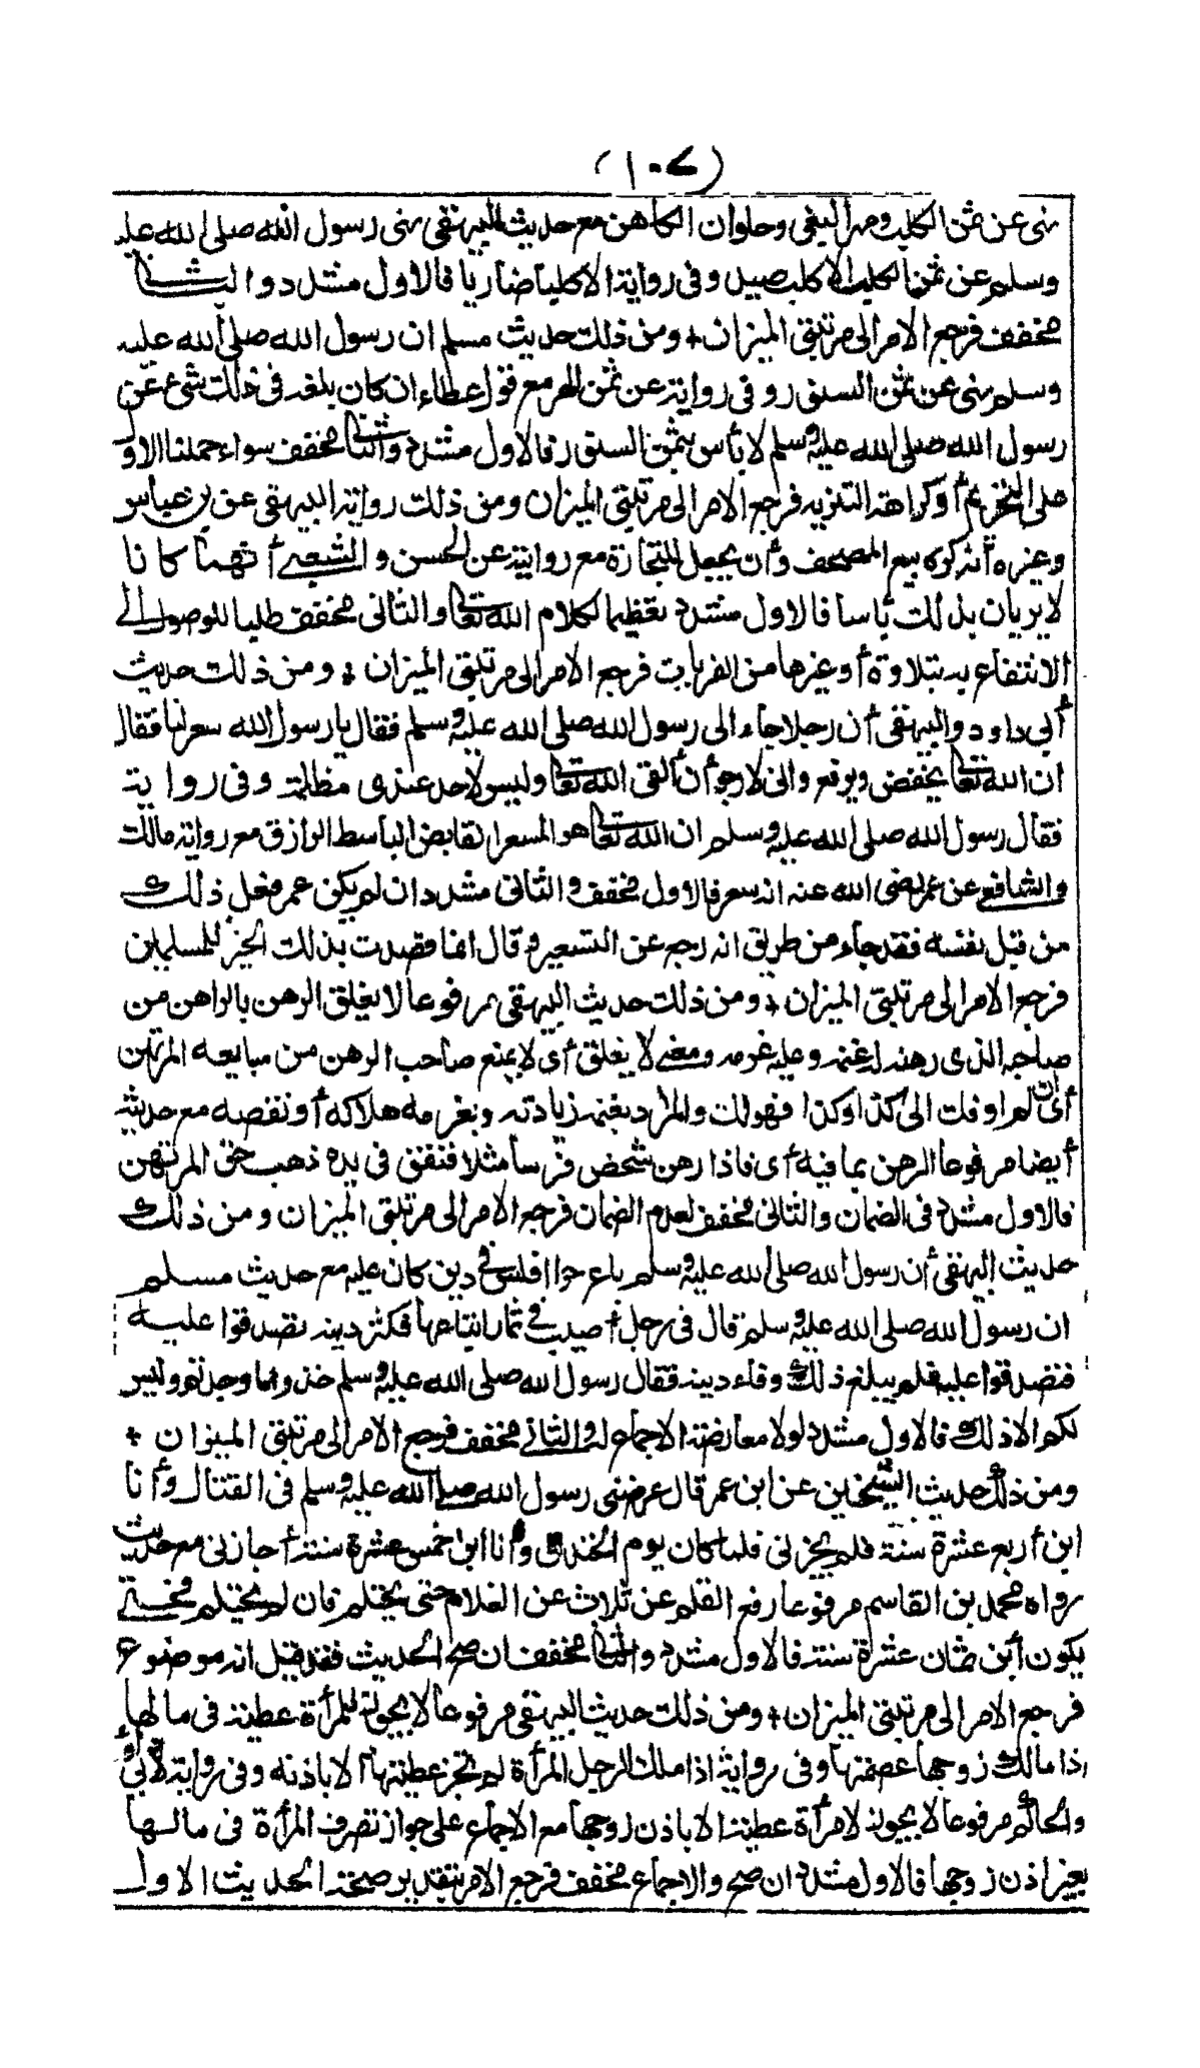 (١٠٧)
نهى عن ثمن الكلب ومهر البغى وحلوان الكاهن مع حديث البيهقى نهى رسول الله صلى الله عليه
وسلم عن ثمن الكلب الا كلب صيد وفى رواية الا كلبا ضاريا فالاول مشدد والثانى
مخفف فرجع الامر الى مرتبتى الميزان + ومن ذلك حديث مسلم ان رسول الله صلى الله عليه
وسلم نهى عن ثمن السنور وفى رواية عن ثمن الهر مع قول عطاء ان كان بلغه فى ذلك شىء عن
رسول الله صلى الله عليه وسلم لا بأس بثمن السنور فالاول مشدد والثانى مخفف سواء حملنا الاول
على التحريم أو كراهة التنزيه فرجع الامر الى مرتبتى الميزان ومن ذلك رواية البيهقى عن بن عباس
وغيره أنه كره بيع المصحف وأن يجعل للتجارة مع روايته عن الحسن والشعبى أنهما كانا
لا يريان بذلك بأسا فالاول مشدد تعظيما لكلام الله تعالى والثانى مخفف طلبا للوصول الى
الانتفاع به بتلاوة أو غيرها من القربات فرجع الامر الى مرتبتى الميزان + ومن ذلك حديث
أبى داود والبيهقى أن رجلا جاء الى رسول الله صلى الله عليه وسلم فقال يا رسول الله سعر لنا فقال
ان الله تعالى يخفض ويرفع وانى لارجو أن ألقى الله تعالى وليس لاحد عندى مظلمة وفى رواية
فقال رسول الله صلى الله عليه وسلم ان الله تعالى هو المسعر القابض الباسط الرازق مع رواية مالك
والشافعى عن عمر رضى الله عنه انه سعر فالاول مخفف والثانى مشدد ان لم يكن عمر فعل ذلك
من قبل نفسه فقد جاء من طريق انه رجع عن التسعير وقال انما قصدت بذلك الخير للمسلمين
فرجع الامر الى مرتبتى الميزان + ومن ذلك حديث البيهقى مرفوعا لا يغلق الرهن بالراهن من
صاحبه الذى رهنه له غنمه وعليه غرمه ومعنى لا يغلق أى لا يمنع صاحب الرهن من مبايعه المرتهن
أى ان لم اوفك الى كذا وكذا فهو لك والمراد بغنمه زيادته وبغرمه هلاكه أو نقصه مع حديثه
أيضا مرفوعا الرهن بما فيه أى فاذا رهن شخص فرسا مثلا فنفق فى يده ذهب حق المرتهن
فالاول مشدد فى الضمان والثانى مخفف لعدم الضمان فرجع الامر الى مرتبتى الميزان ومن ذلك
حديث البيهقى أن رسول الله صلى الله عليه وسلم باع حرا افلس فى دين كان عليه مع حديث مسلم
ان رسول الله صلى الله عليه وسلم قال فى رجل أصيب فى ثمار ابتاعها فكثر دينه تصدقوا عليه
فتصدقوا عليه فلم يبلغ ذلك وفاء دينه فقال رسول الله صلى الله عليه وسلم خذوا ما وجدتم وليس
لكم الا ذلك فالاول مشدد لولا معارضة الاجماع له والثانى مخفف فرجع الامر الى مرتبتى الميزان +
ومن ذلك حديث الشيخين عن ابن عمر قال عرضنى رسول الله صلى الله عليه وسلم فى القتال وأنا
ابن أربع عشرة سنة فلم يجزنى فلما كان يوم الخندق وأنا ابن خمس عشرة سنة أجازنى مع حديث
رواه محمد بن القاسم مرفوعا رفع القلم عن ثلاث عن الغلام حتى يحتلم فان لم يحتلم فحتى
يكون أبن ثمان عشرة سنة فالاول مشدد والثانى مخفف ان صح الحديث فقد قيل انه موضوع
فرجع الامر الى مرتبتى الميزان + ومن ذلك حديث البيهقى مرفوعا لا يجوز للمرأة عطية فى مالها
اذا مالك زوجها عصمتها وفى رواية اذا ملك الرجل المرأة لم تجز عطيتها الا باذنه وفى رواية لأبى داود
والحاكم مرفوعا لا يجوز لامرأة عطية الا باذن زوجها مع الاجماع على جواز تصرف المرأة فى مالها
بغير اذن زوجها فالاول مشدد ان صح والاجماع مخفف فرجع الامر بتقدير صحة الحديث الاول